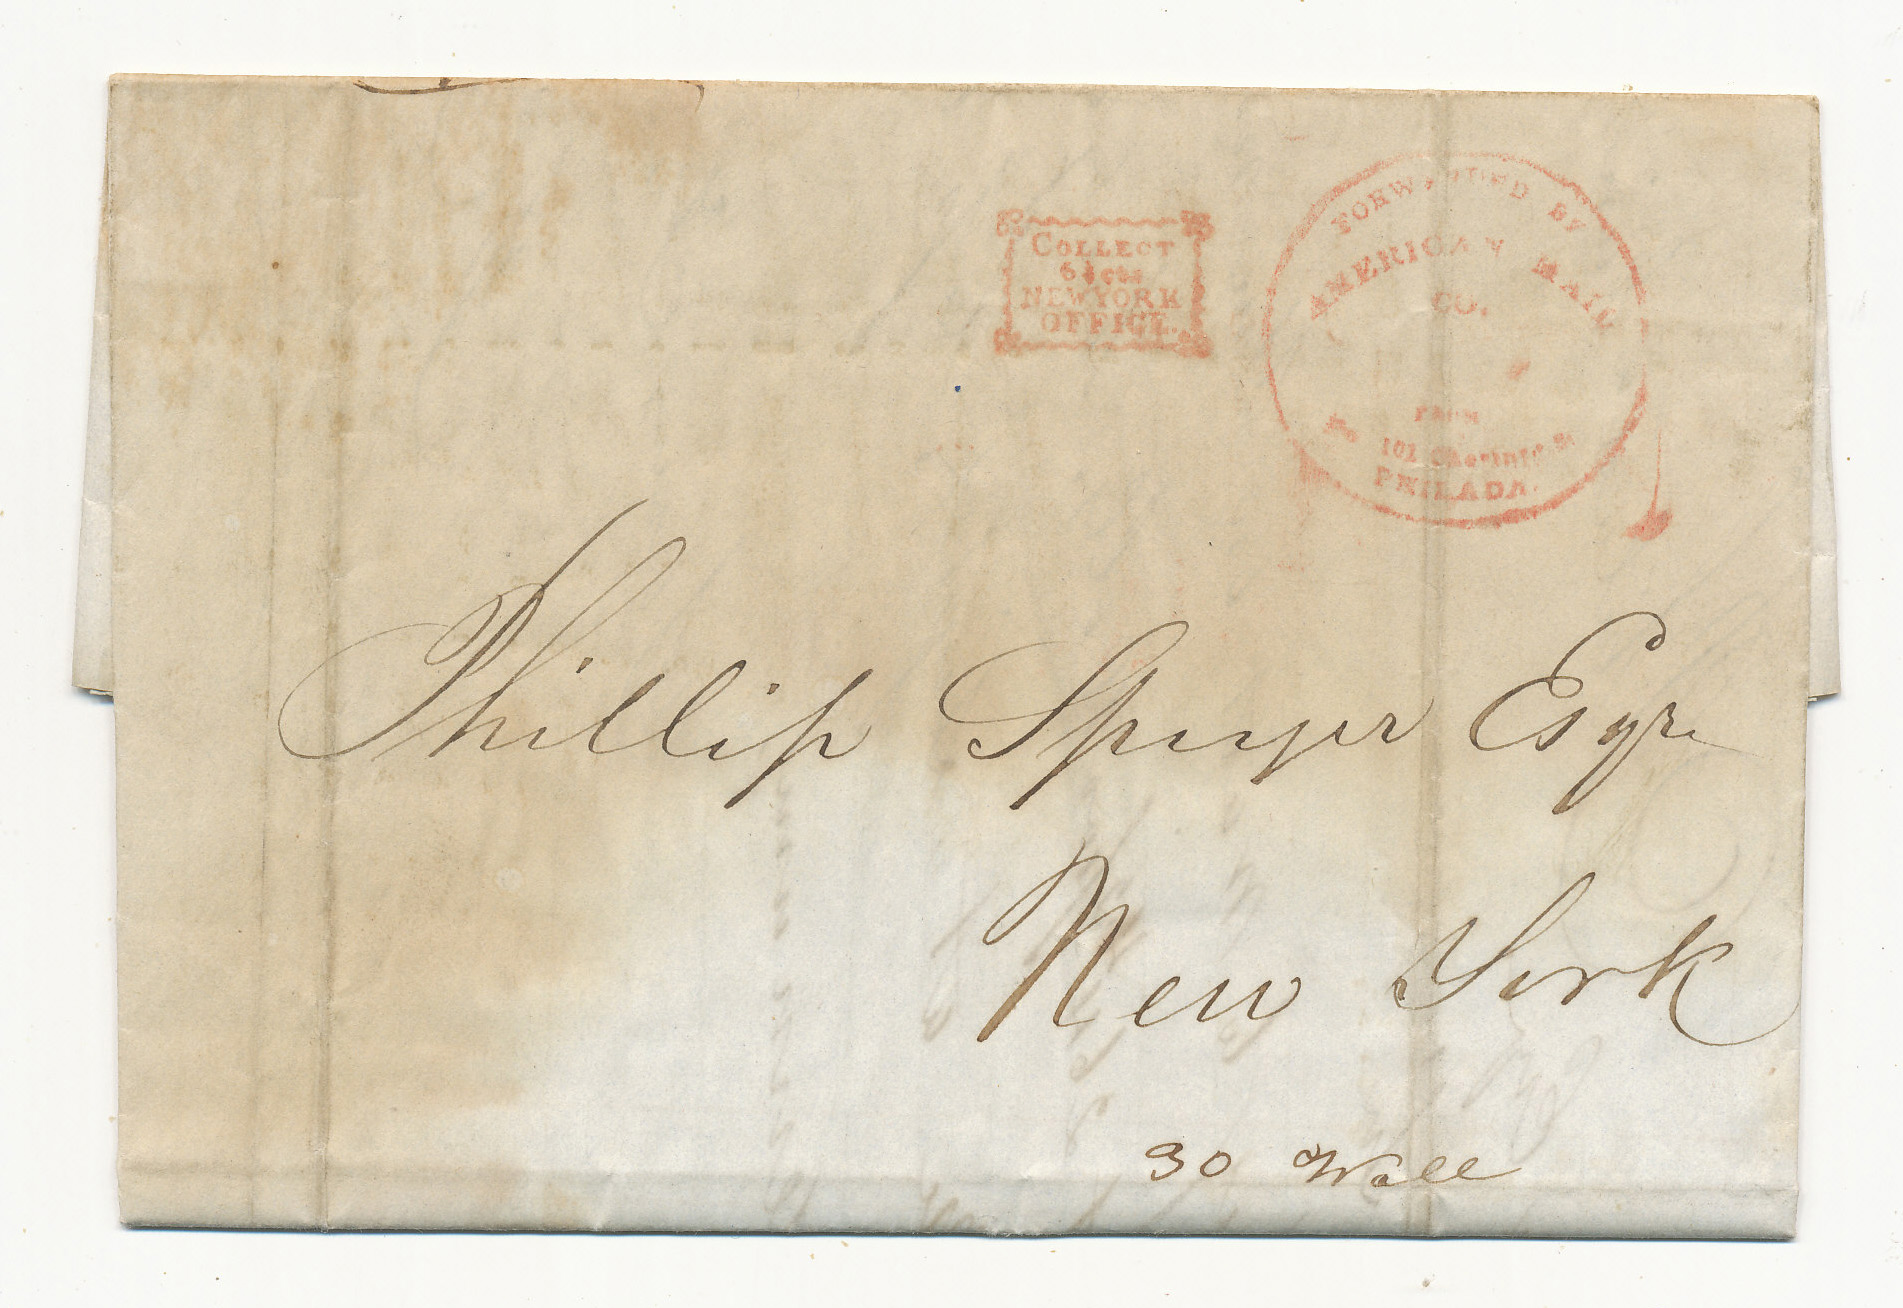 COLLECT
6¼cts
NEWYORK
OFFICE.
FORWARDED BY
AMERICAN MAIL
CO.
FROM
No 101 Chesnut St
PHILADA.
Phillip Speyer Esqr
New York
30 Wall